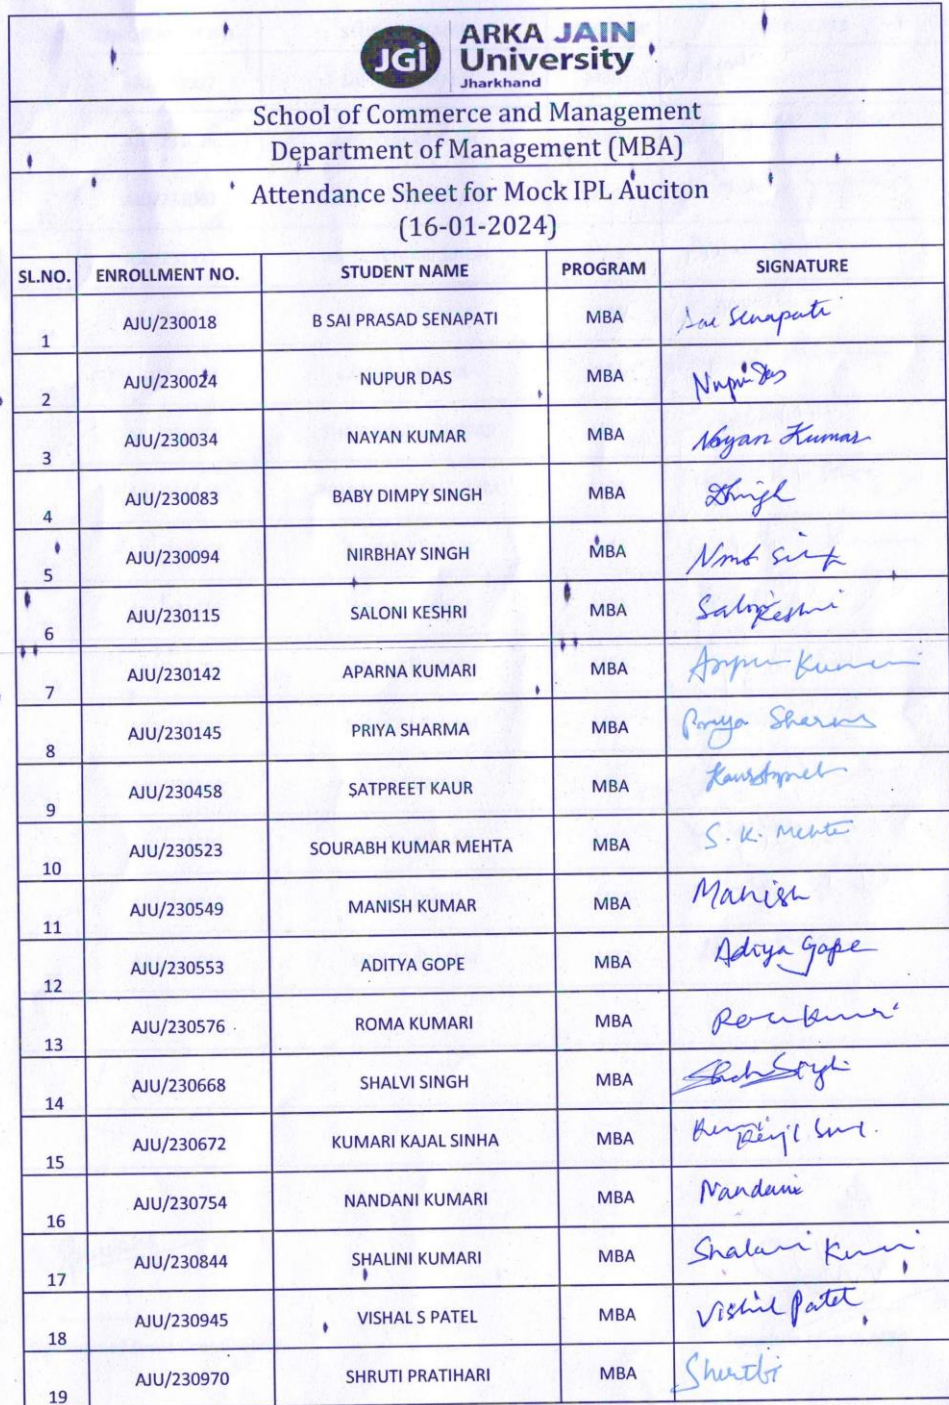 JGi ARKA JAIN
University
Jharkhand
School of Commerce and Management
Department of Management (MBA)
Attendance Sheet for Mock IPL Auciton
(16-01-2024)
SL.NO. ENROLLMENT NO. STUDENT NAME PROGRAM SIGNATURE
1 AJU/230018 B SAI PRASAD SENAPATI MBA Sai Senapati
2 AJU/230024 NUPUR DAS MBA Nupur Das
3 AJU/230034 NAYAN KUMAR MBA Nayan Kumar
4 AJU/230083 BABY DIMPY SINGH MBA
5 AJU/230094 NIRBHAY SINGH MBA
6 AJU/230115 SALONI KESHRI MBA Saloni Keshri
7 AJU/230142 APARNA KUMARI MBA
8 AJU/230145 PRIYA SHARMA MBA Priya Sharma
9 AJU/230458 SATPREET KAUR MBA
10 AJU/230523 SOURABH KUMAR MEHTA MBA S. K. Mehta
11 AJU/230549 MANISH KUMAR MBA Manish
12 AJU/230553 ADITYA GOPE MBA Aditya Gope
13 AJU/230576 ROMA KUMARI MBA
14 AJU/230668 SHALVI SINGH MBA
15 AJU/230672 KUMARI KAJAL SINHA MBA
16 AJU/230754 NANDANI KUMARI MBA Nandani
17 AJU/230844 SHALINI KUMARI MBA Shalini Kumari
18 AJU/230945 VISHAL S PATEL MBA Vishal Patel
19 AJU/230970 SHRUTI PRATIHARI MBA